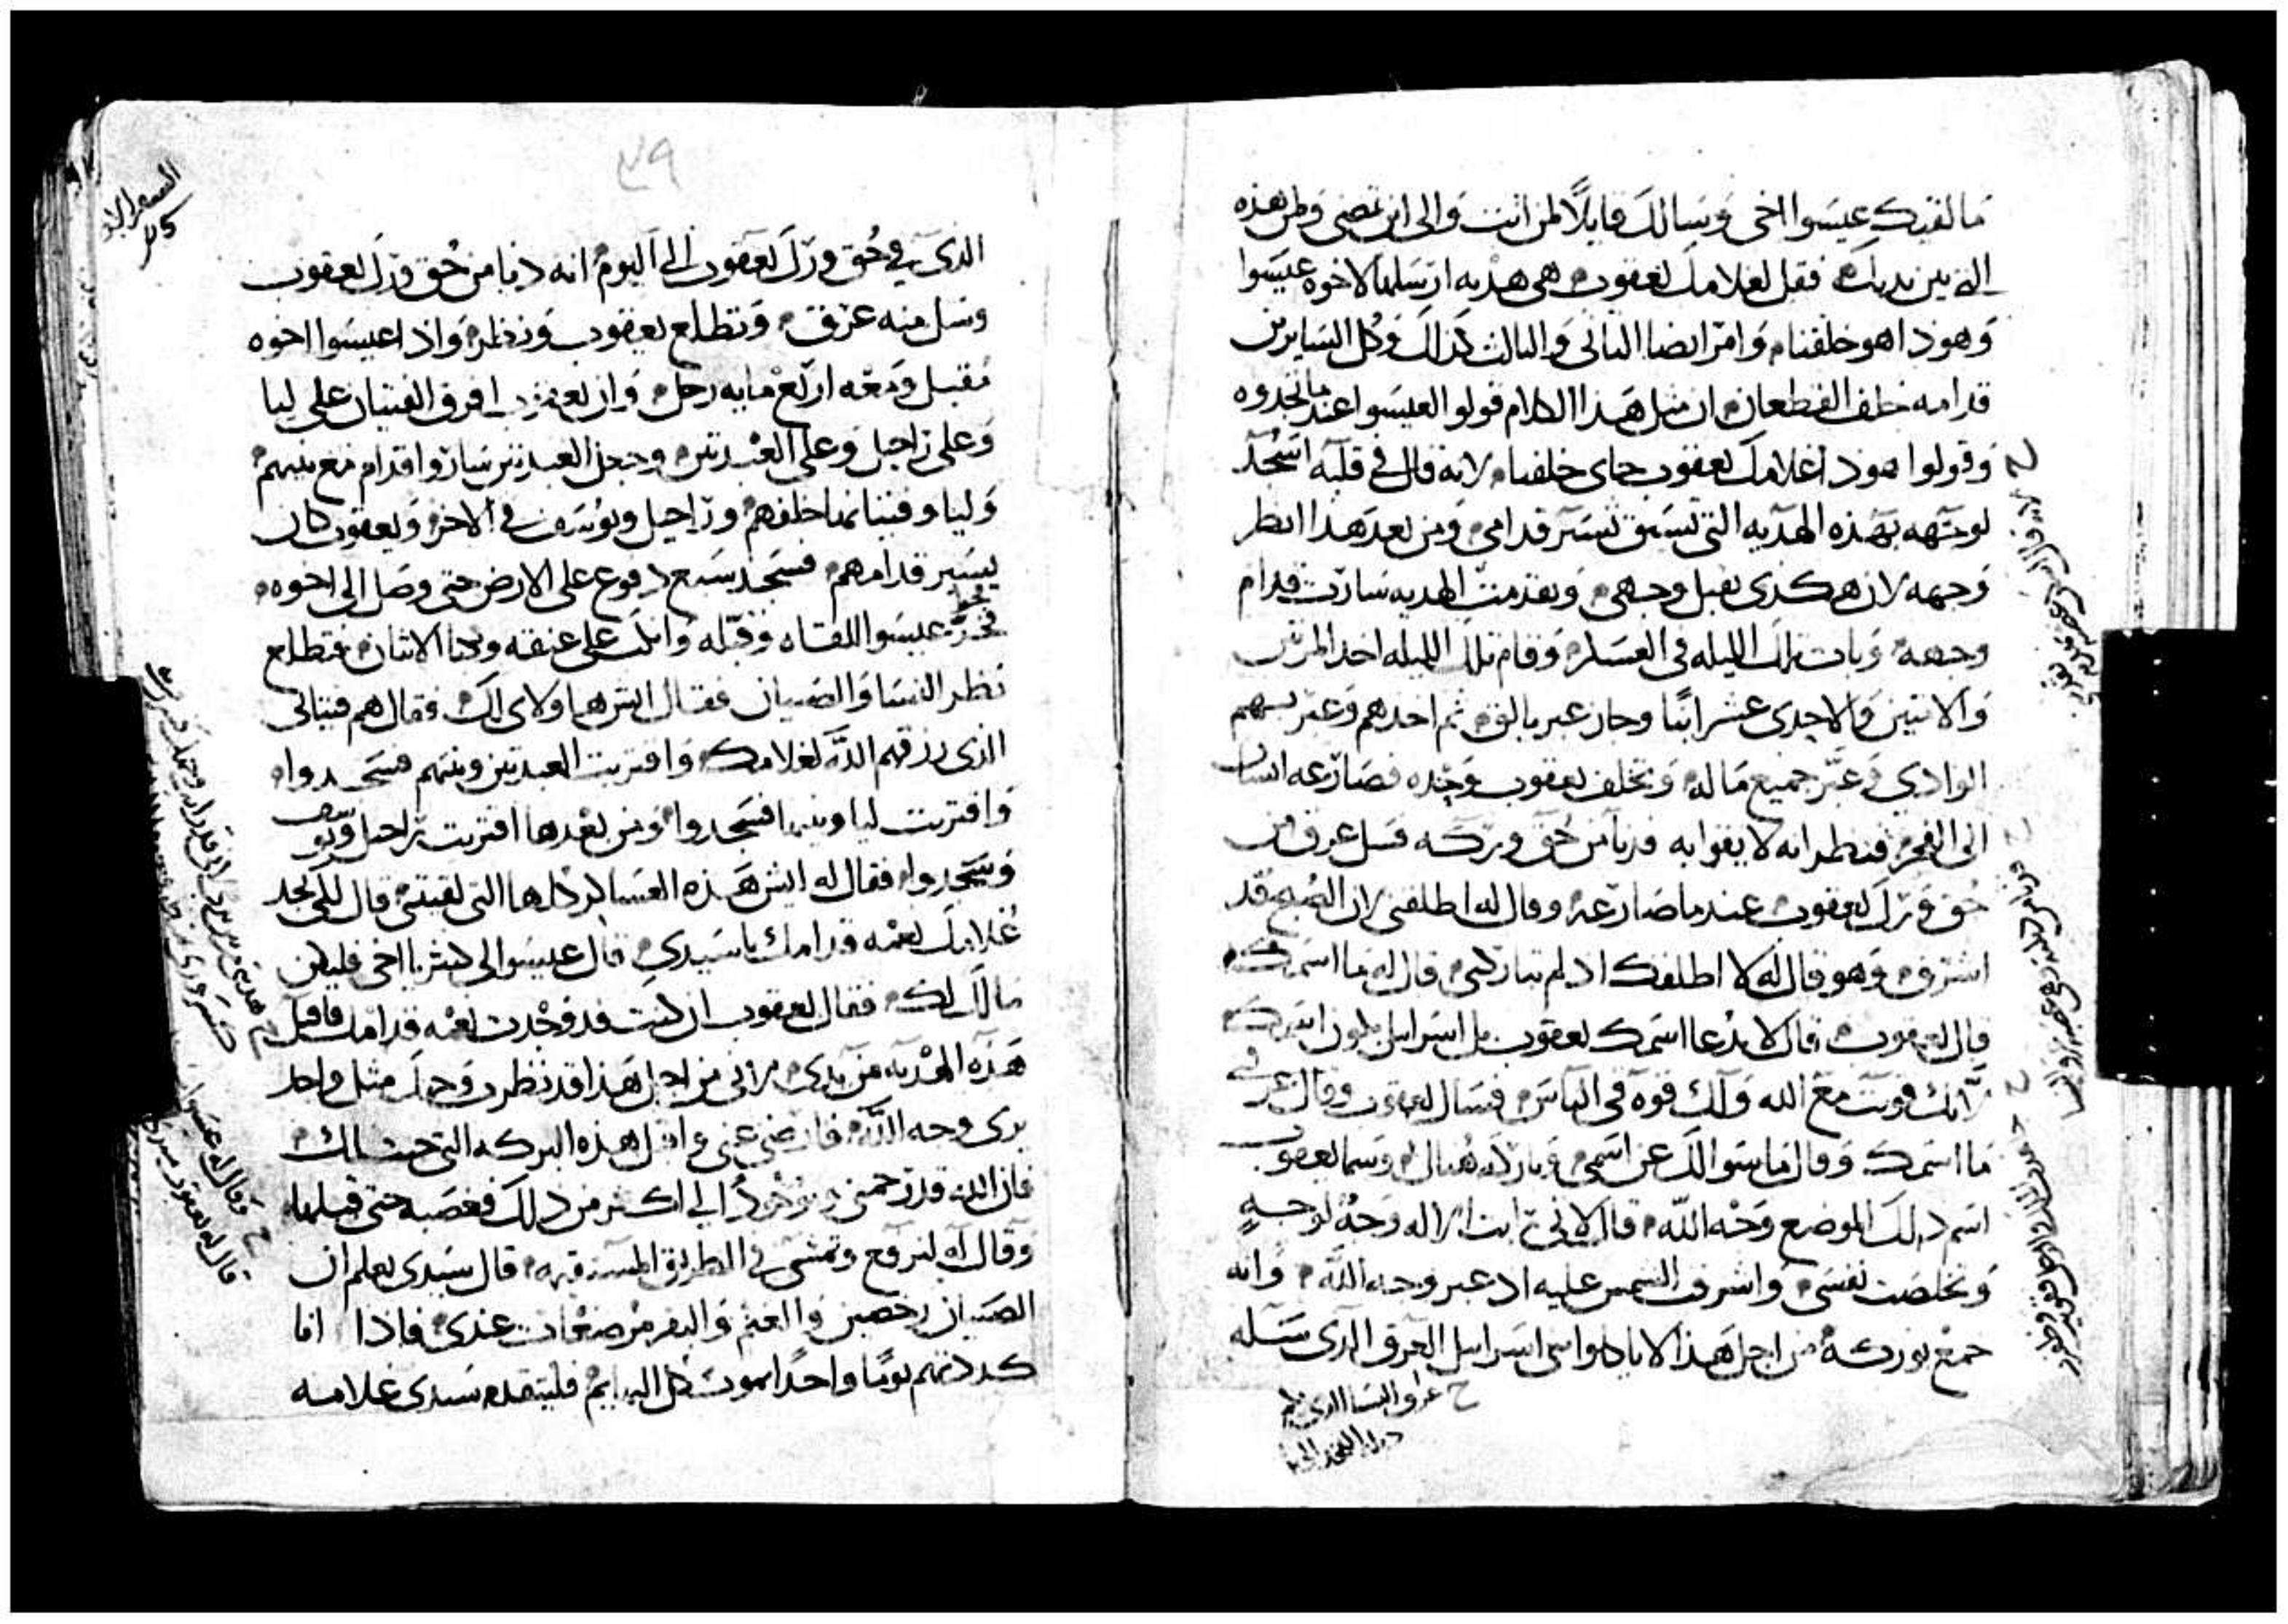 ما لقيك عيسوا اخي وسالك قايلا لمن انت والى اين تمضي ولمن هذه
الذين يديك فقل لغلامك ليعقوب هي هديه ارسلها لاخوه عيسوا
وهوذا هو خلفنا وامر ايضا الثاني والثالث كذلك وكل السايرين
قدامه خلف القطعان ان مثل هذا الكلام قولوا لعيسوا عندما تجدوه
وقولوا هوذا غلامك يعقوب جاي خلفنا لانه قال في قلبه اسجد
لوجهه بهذه الهديه التي تسبق تسير قدامي ومن بعد هذا انظر
وجهه لان هكذى يقبل وجهي وتقدمت الهديه سارت قدام
وجهه وبات تلك الليله في العسكر وقام تلك الليله اخذ المرتين
والاثنين والاحدى عشر ابنا وجاز عبر يابوق ثم اخذهم وعبر بهم
الوادي وعبر جميع ماله وتخلف يعقوب وحده فصارعه انسان
الى الفجر فنظر انه لا يقوا به فدنا من حق وركه فسل عرق من
حق ورك يعقوب عندما صارعه وقال له اطلقني لان الصبح قد
اشرق وهو قال له لا اطلقك اذ لم تباركني قال له ما اسمك
قال يعقوب قال لا يدعا اسمك يعقوب بل اسراييل يكون اسمك
لانك قويت مع الله ولك قوه في الناس فسال يعقوب وقال عرفني
ما اسمك وقال ما سوالك عن اسمي وباركه هناك وسما يعقوب
اسم ذلك الموضع وجه الله قال لاني رايت الاله وجه لوجه
وتخلصت نفسي واشرقت الشمس عليه اذ عبر وجه الله وانه
جمع بوركه من اجل هذا لا ياكلوا بني اسراييل العرق الذي سله
ح عرق النسا الذي
٣٩
السفر الاول
الذي في حق ورك يعقوب الى اليوم انه دنا من حق ورك يعقوب
وسل منه عرق وتطلع يعقوب ونظر واذا عيسوا اخوه
مقبل ومعه اربع مايه رجل وان يعقوب افرق الفتيان على ليا
وعلى راحيل وعلى العبدتين وجعل العبدتين ساروا قدام مع بنيهم
وليا وفتيانها خلفهم وراحيل ويوسف في الاخر ويعقوب كان
يسير قدامهم فسجد سبع دفوع على الارض حتى وصل الى اخوه
فخر عيسوا للقاه وقبله وانكب على عنقه وبكيا الاثنان فتطلع
نظر النسا والصبيان فقال ايش هم هاولاى لك فقال هم فتياني
الذي رزقهم الله لغلامك واقتربت العبدتين وبنيهم فسجدوا
واقتربت ليا وبنيها فسجدوا ومن بعدها اقتربت راحيل ويوسف
وسجدوا فقال له ايش هذه العساكر كلها التي لقيتني قال لكي يجد
غلامك نعمه قدامك يا سيدي قال عيسوا لي كثير يا اخي فليكن
مالك لك فقال يعقوب ان كنت قد وجدت نعمه قدامك فاقبل
هذه الهديه من يدي لاني من اجل هذا قد نظرت وجهك مثل واحد
يرى وجه الله فارضى عني واقبل هذه البركه التي جبت لك
فان الله قد رحمني وموجود لي اكثر من ذلك فغصبه حتى قبلها
وقال له لنرفع ونمشي في الطريق المستقيمه قال سيدي يعلم ان
الصبيان رخصين والغنم والبقر مرضعات عندي فاذا انا
كددتهم يوما واحدا يموت كل البهايم فليتقدم سيدي غلامه
ح وقال له عيسوا
قال له يعقوب